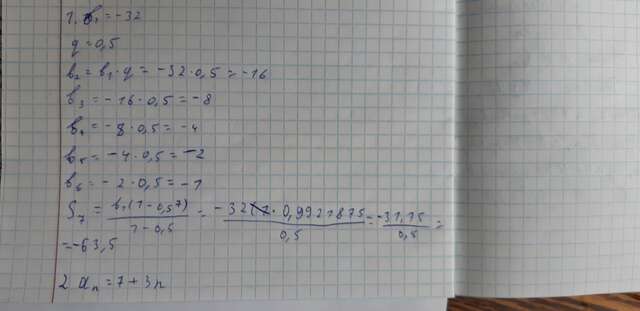 1. b₁ = -32
q = 0,5
b₂ = b₁ · q = -32 · 0,5 = -16
b₃ = -16 · 0,5 = -8
b₄ = -8 · 0,5 = -4
b₅ = -4 · 0,5 = -2
b₆ = -2 · 0,5 = -1
S₇ = b₁(1-0,5⁷) / 1-0,5 = -32 · 0,9921875 / 0,5 = -31,75 / 0,5 =
= -63,5
2. aₙ = 7 + 3n